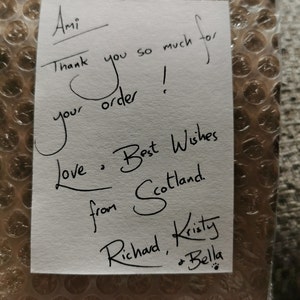 Ami
Thank you so much for
your order !
Love & Best Wishes
from Scotland
Richard, Kristy
& Bella